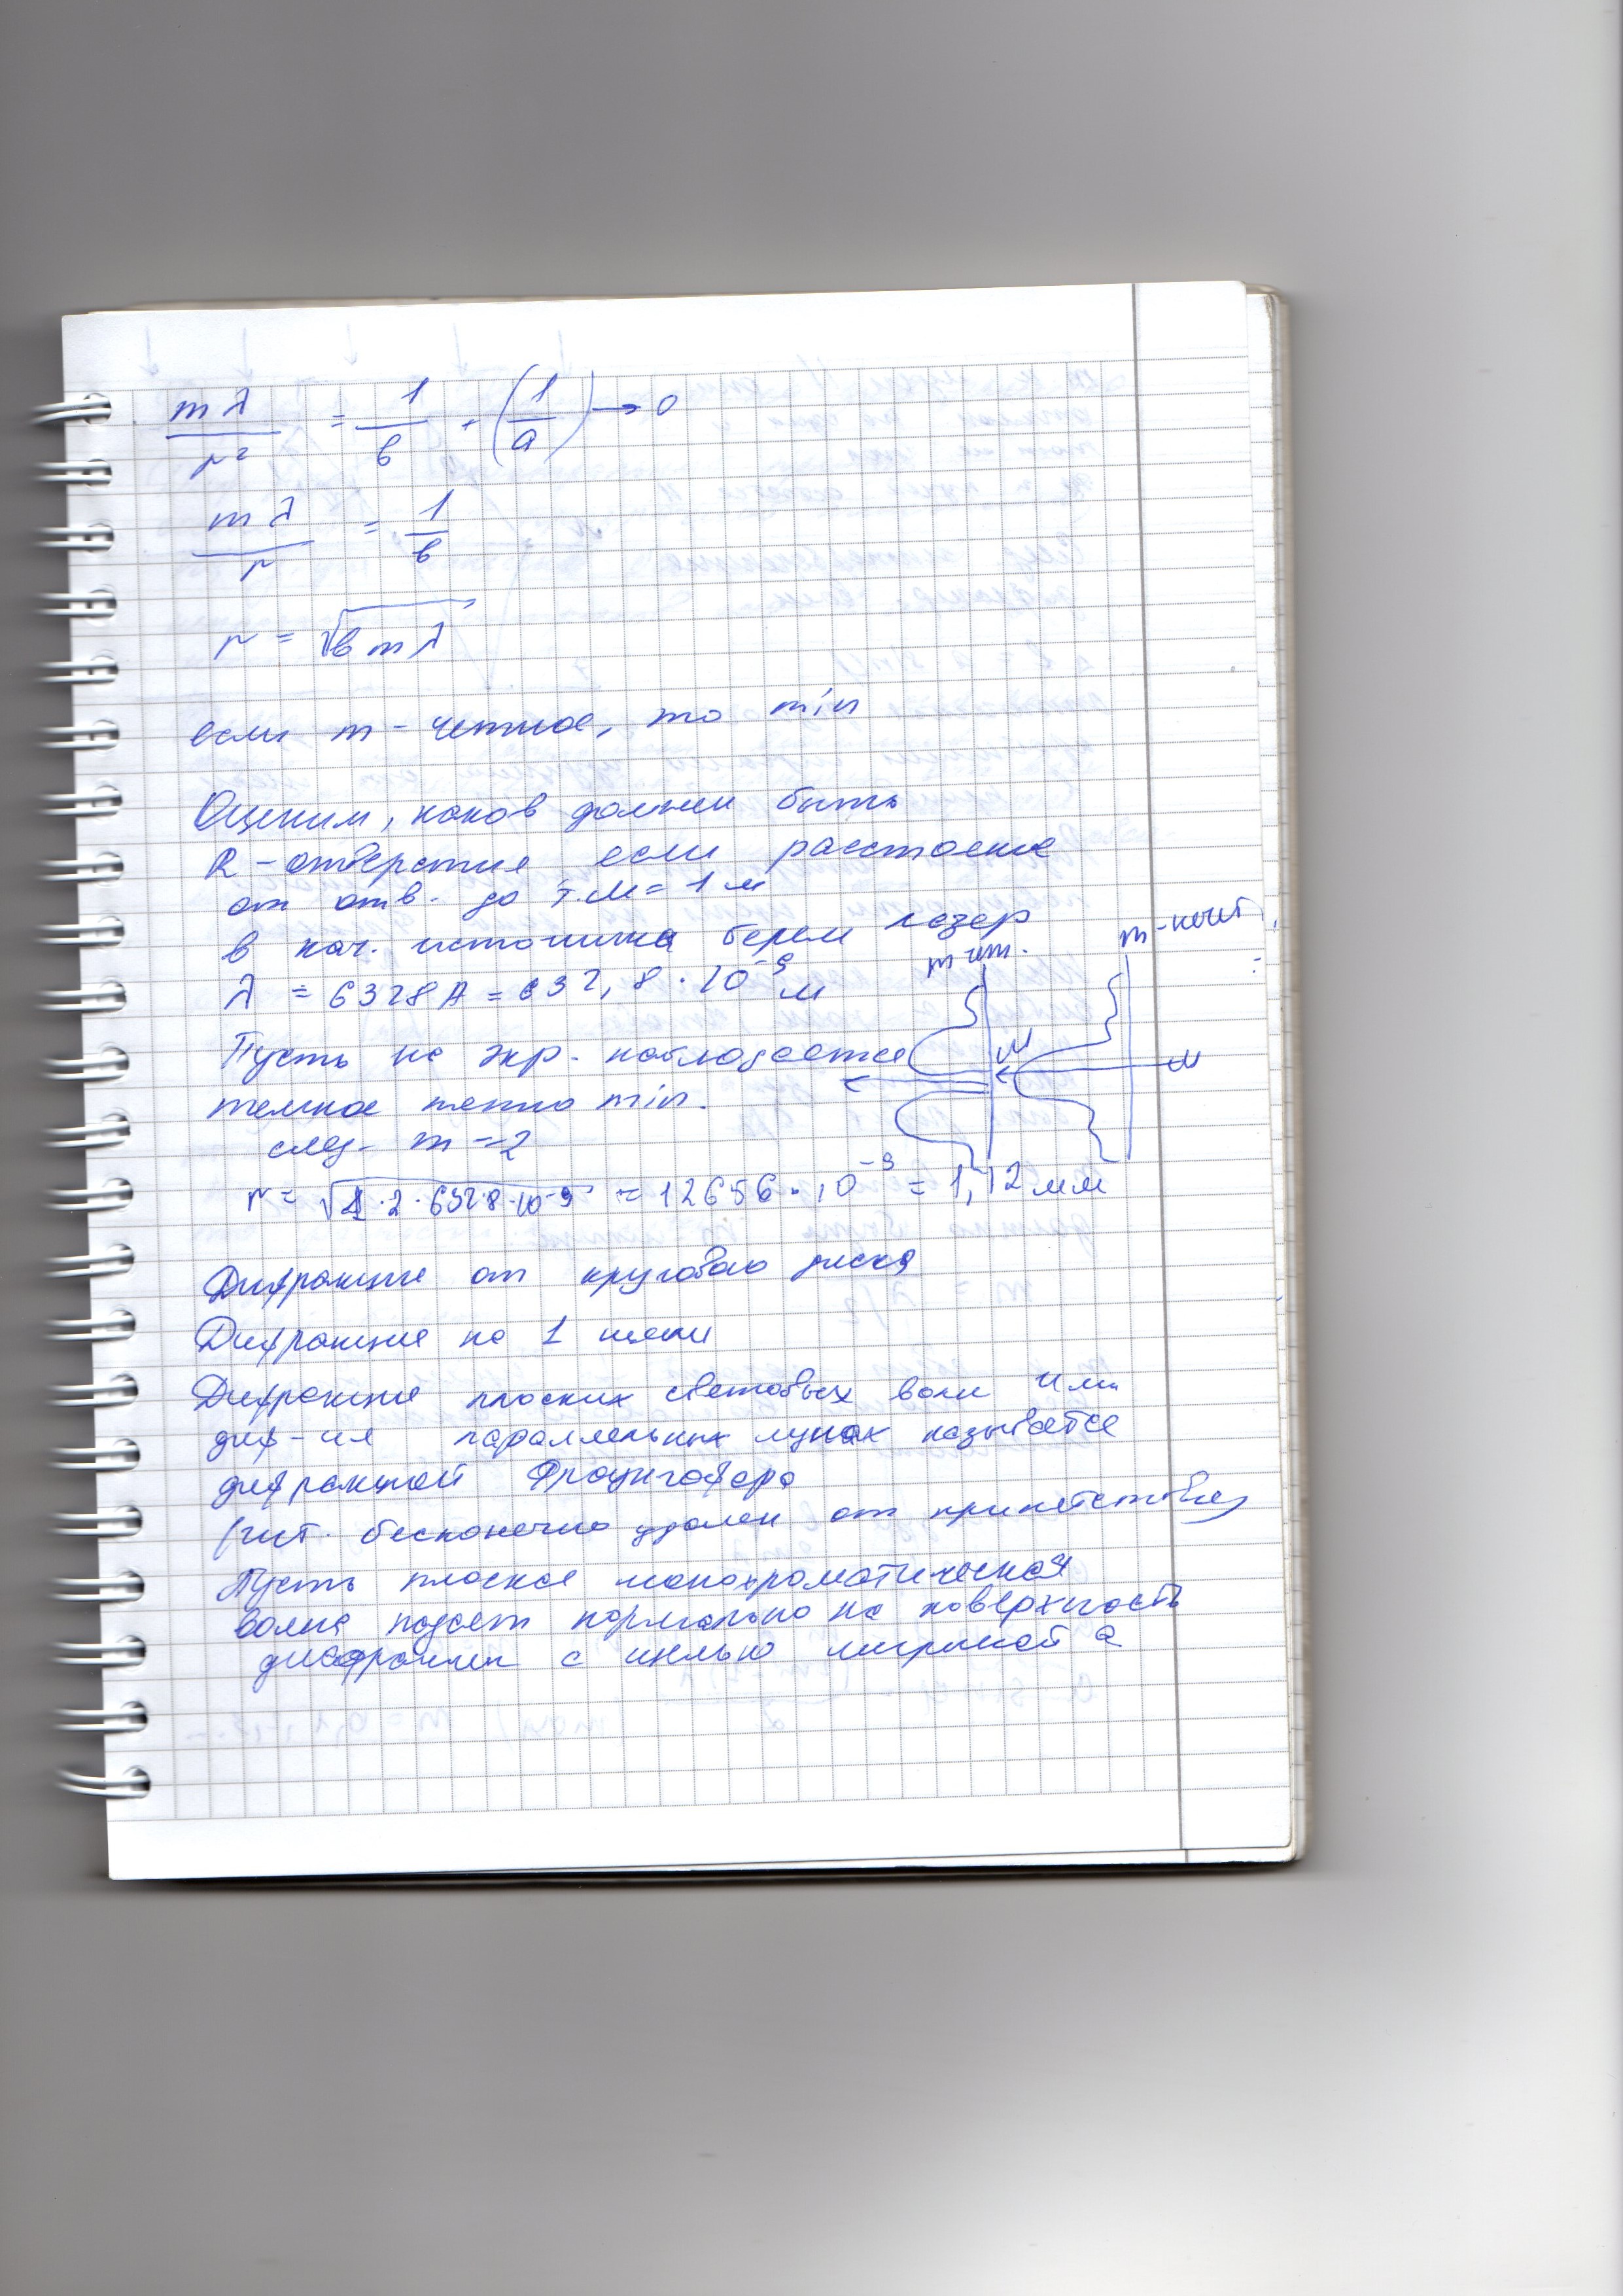 mλ/r² = 1/в + (1/a) → 0
mλ/r = 1/в
r = √вmλ
если m - четное, то min
Оценим, каков должен быть
R - отверстия если расстояние
от отв. до т. М = 1 м
в кач. источника берем лазер
λ = 6328 А = 632,8 · 10⁻⁹ м
m чт.
m - нечет.
Пусть на экр. наблюдается
М
М
темное пятно min.
след. m = 2
r = √1·2·6328·10⁻⁹ = 12656·10⁻⁹ = 1,12 мм
Дифракция от кругового диска
Дифракция на 1 щели
Дифракция плоских световых волн или
диф-ия параллельных лучах называется
дифракцией Фраунгофера
(ист. бесконечно удален от припятствия)
Пусть плоская монохроматическая
волна падает нормально на поверхность
диафрагмы с щелью шириной a